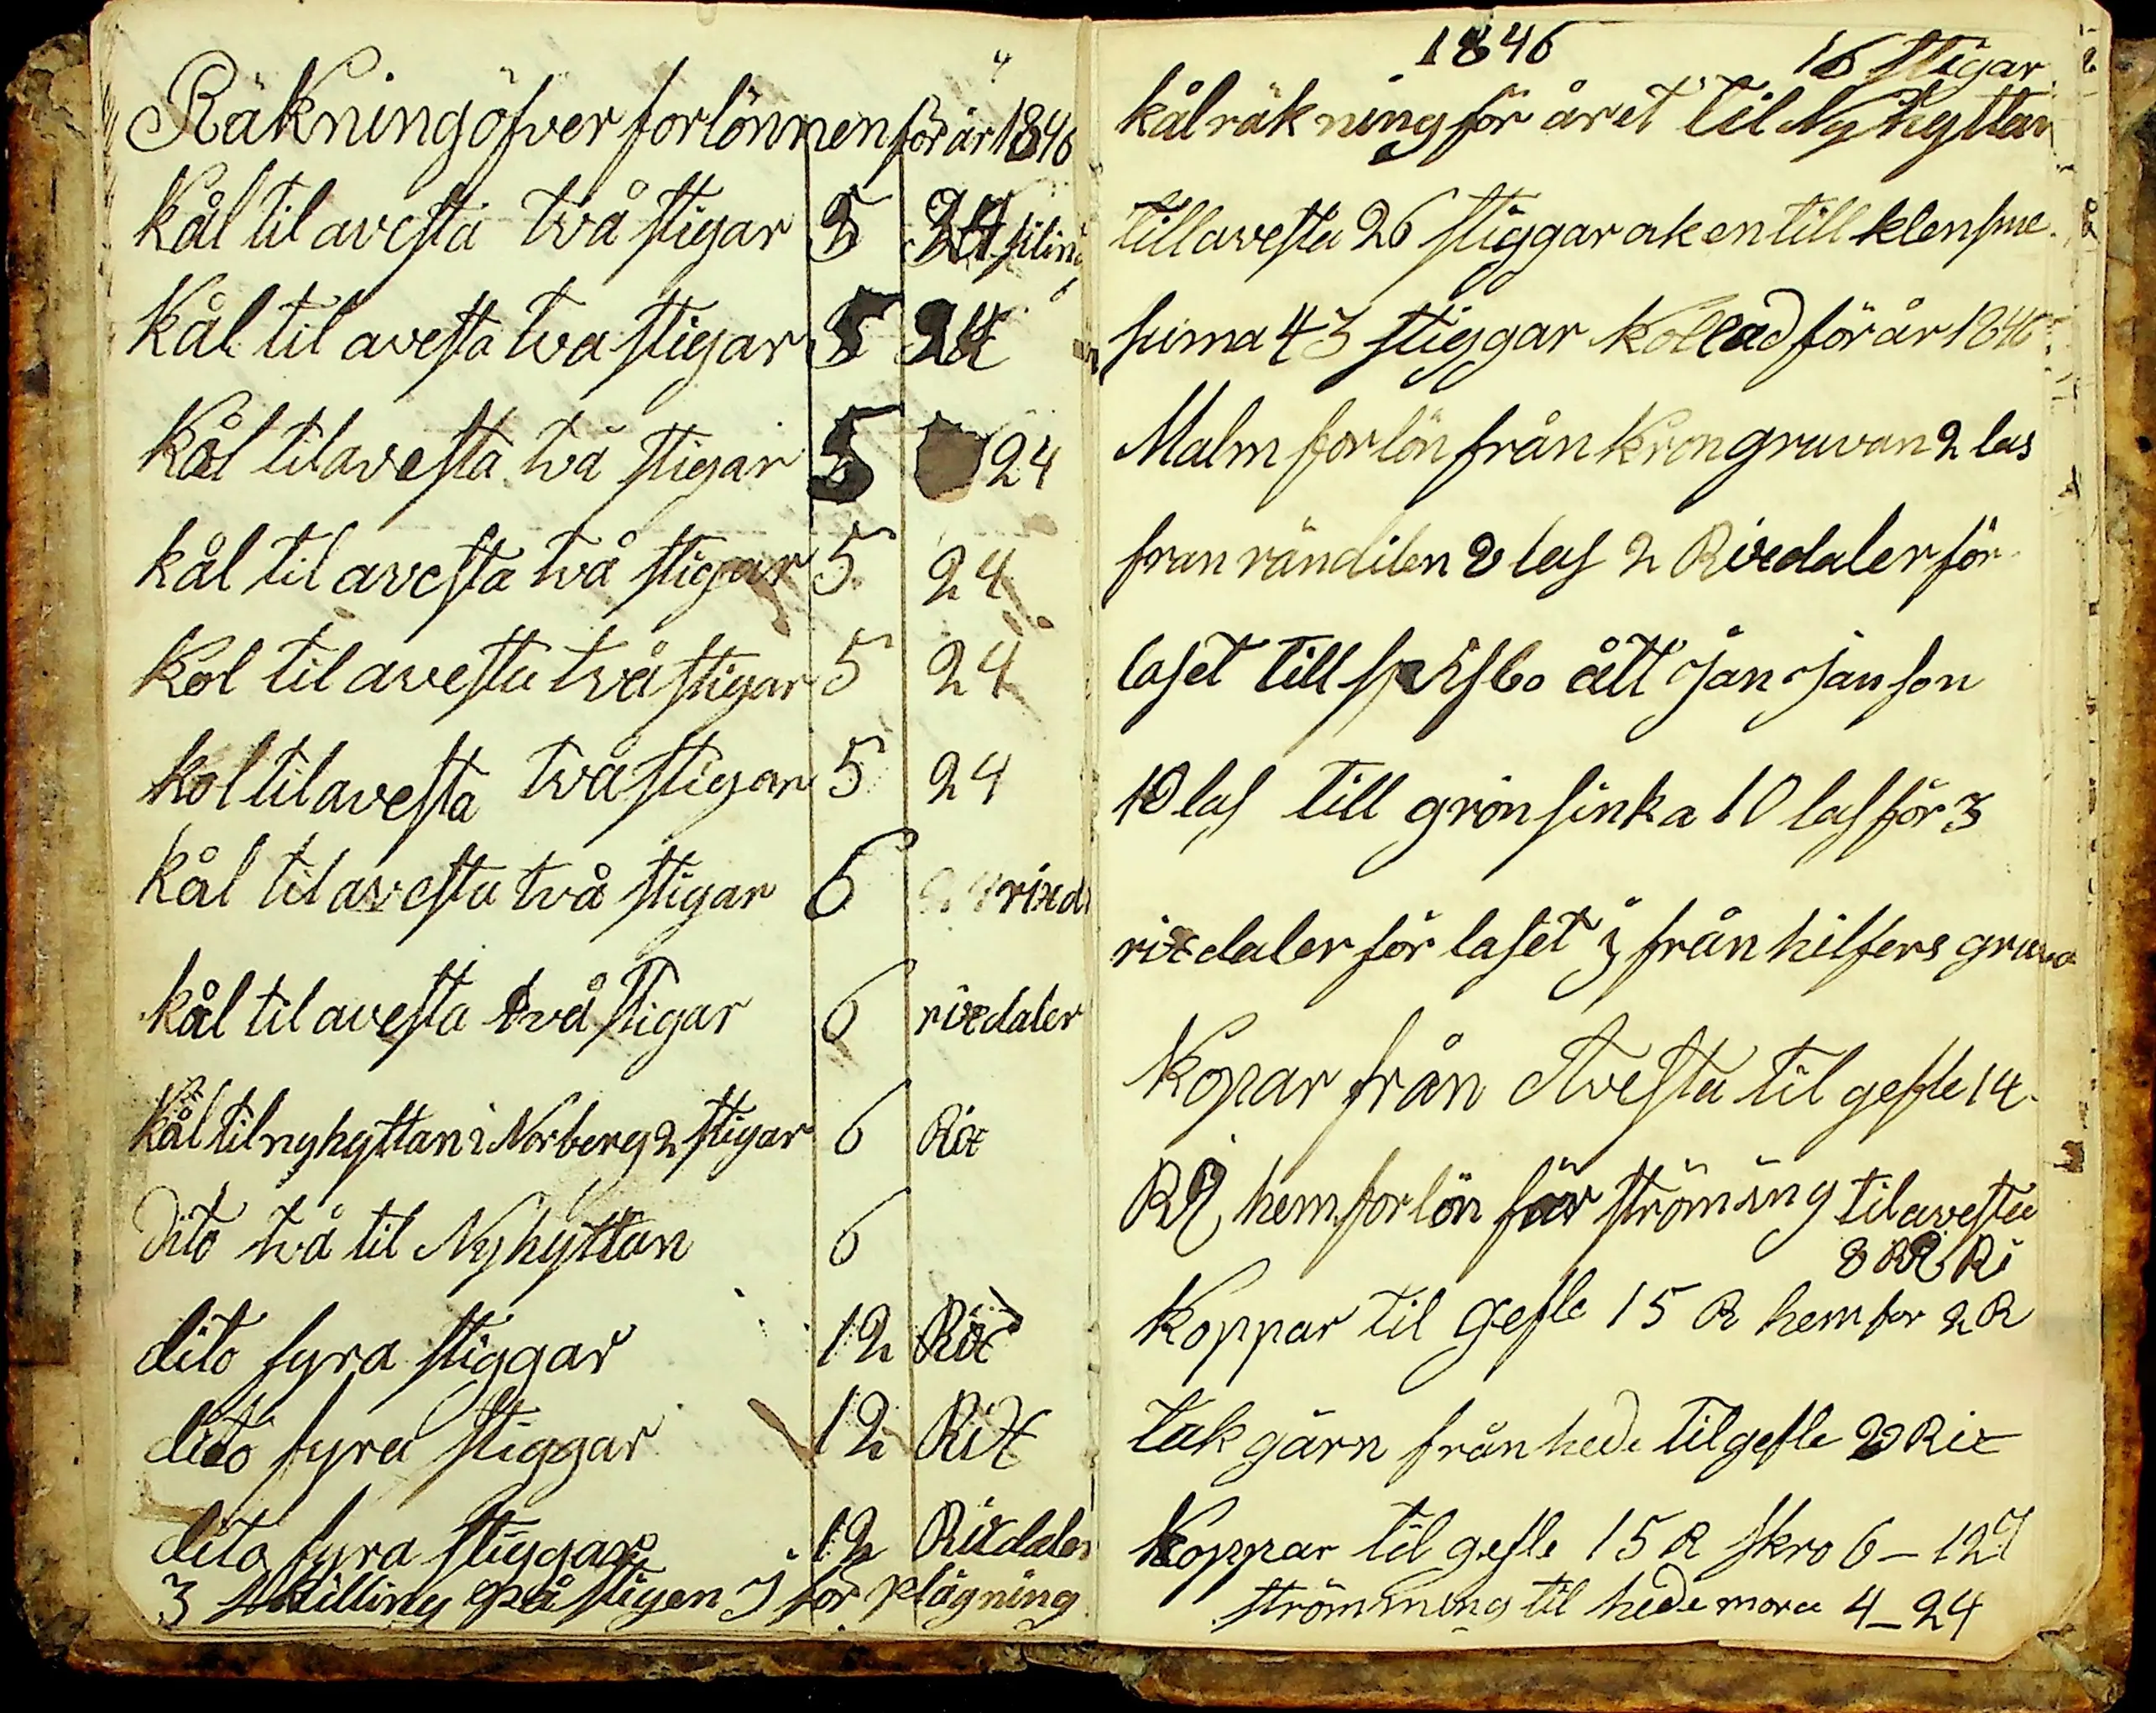 Räkning öfver forlönnen för år 1846
Kål til avesta två stigar 5 24 siling
Kål til avesta tva stigar 5 24
Kål til avesta två stigar 5 24
kål til avesta två stigar 5 24
Kol til avesta två stigar 5 24
kol til avesta två stigar 5 24
kål til avesta två stigar 6 rixd
kål til avesta två stigar 6 rixdaler
Kål til nyhyttan i Norberg 2 stigar 6 Rix
dito två til Nyhyttan 6
dito fyra stiggar 12 Rix
dito fyra stiggar 12 Rix
dito fyra stiggar 12 Rixdaler
3 skilling på stigen J for plägning
1846
16 stigar
kål räkning för året til Nyhyttan
till avesta 26 stiggar ak en till klensme
suma 43 stiggar kollad för år 1846
Malm forlön från Krongruvan 2 las
fran rändilen 2 las 2 Rixdaler för
laset till bo ått Jan Janson
10 las till grönsinka 10 las för 3
rixdaler för laset från hilfers gruva
Kopar från Avesta til gefle 14
R hemforlön för strömïng til avesta
8 Ri
Koppar til gefle 15 R hemfor 2 R
tak gärn från hede til gefle 20 Rix
Koppar til gefle 15 R skro 6 – 12
strömming til hedemora 4 – 24